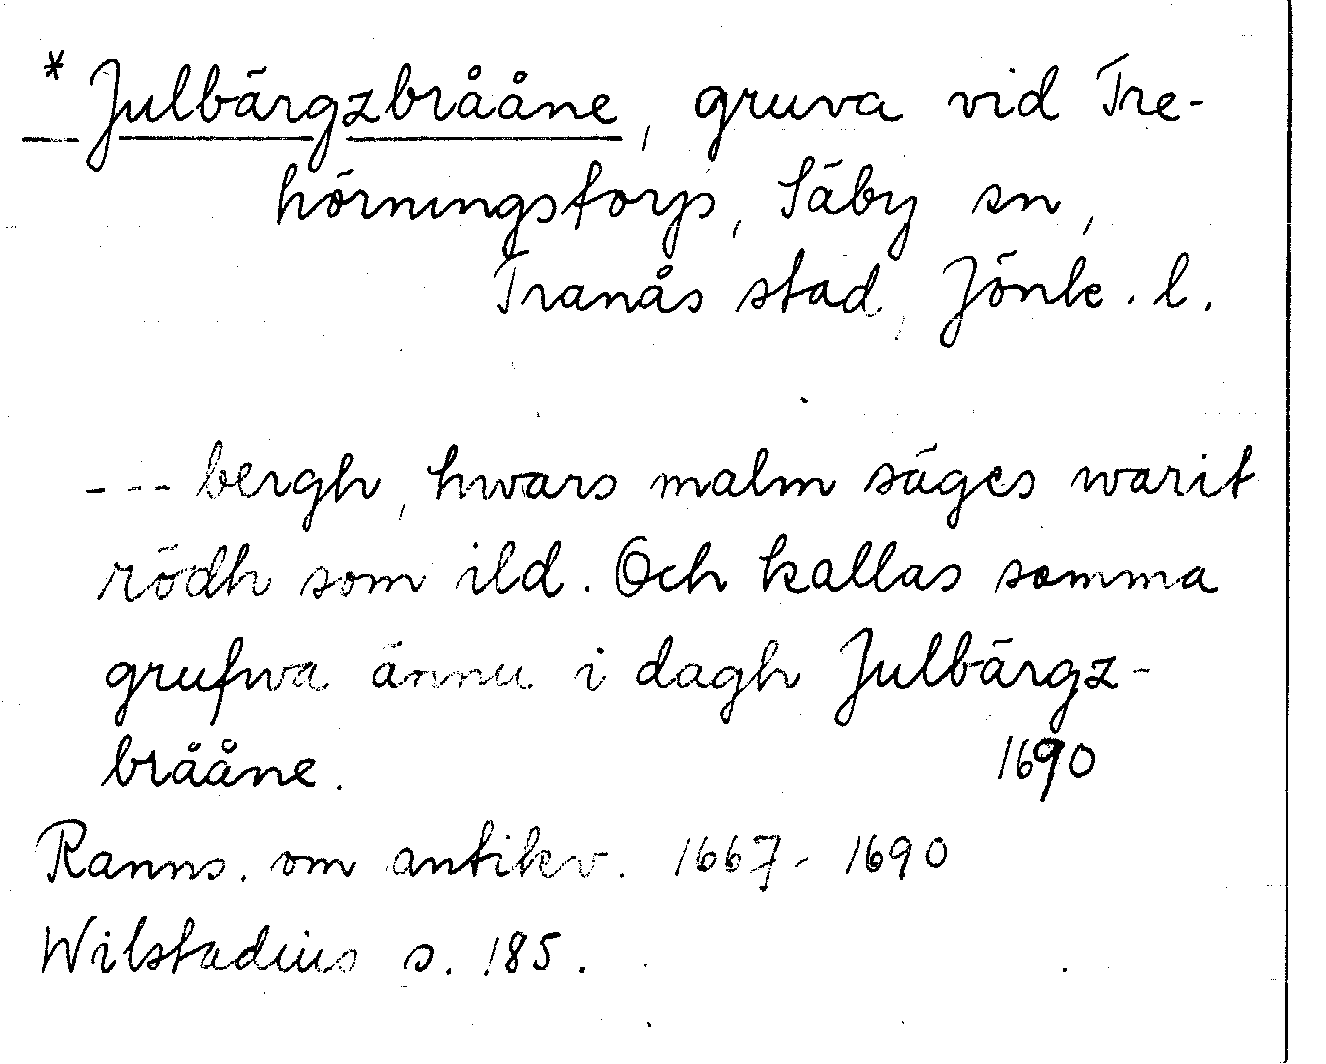 * Julbärgzbrååne, gruva vid Tre-
hörningstorp, Säby sn,
Tranås stad, Jönk. l.
--- bergh, hwars malm säges warit
rödh som ild. Och kallas somma
grufwa ännu i dagh Julbärgz-
brååne. 1690
Ranns. om antikv. 1667-1690
Wilstadius s. 185.